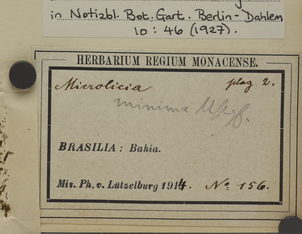 in Notizbl. Bot. Gart. Berlin-Dahlem
10 : 46 (1927).
HERBARIUM REGIUM MONACENSE.
Microlicia plag 2.
minima Mgf.
BRASILIA: Bahia.
Mis. Ph. v. Lützelburg 1914. No 156.